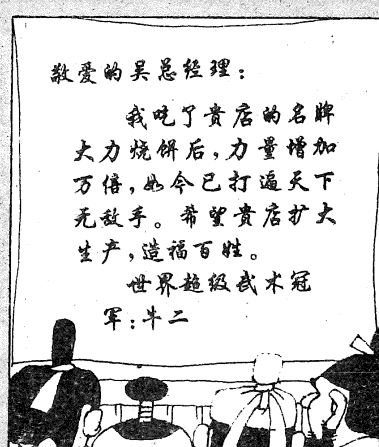 敬爱的吴总经理：
我吃了贵店的名牌
大力烧饼后，力量增加
万倍，如今已打遍天下
无敌手。希望贵店扩大
生产，造福百姓。
世界超级武术冠
军：牛二